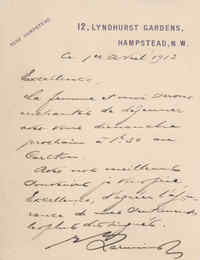 5092 HAMPSTEAD
12, LYNDHURST GARDENS,
HAMPSTEAD, N.W.
Ce 1er Avril 1912
Excellence.
La femme et moi serons
enchantés de déjeuner
avec vous dimanche
prochain à 1.30 au
Carlton.
Avec nos meilleurs
Excellence, d'agréer l'assu-
rance de mes sentiments